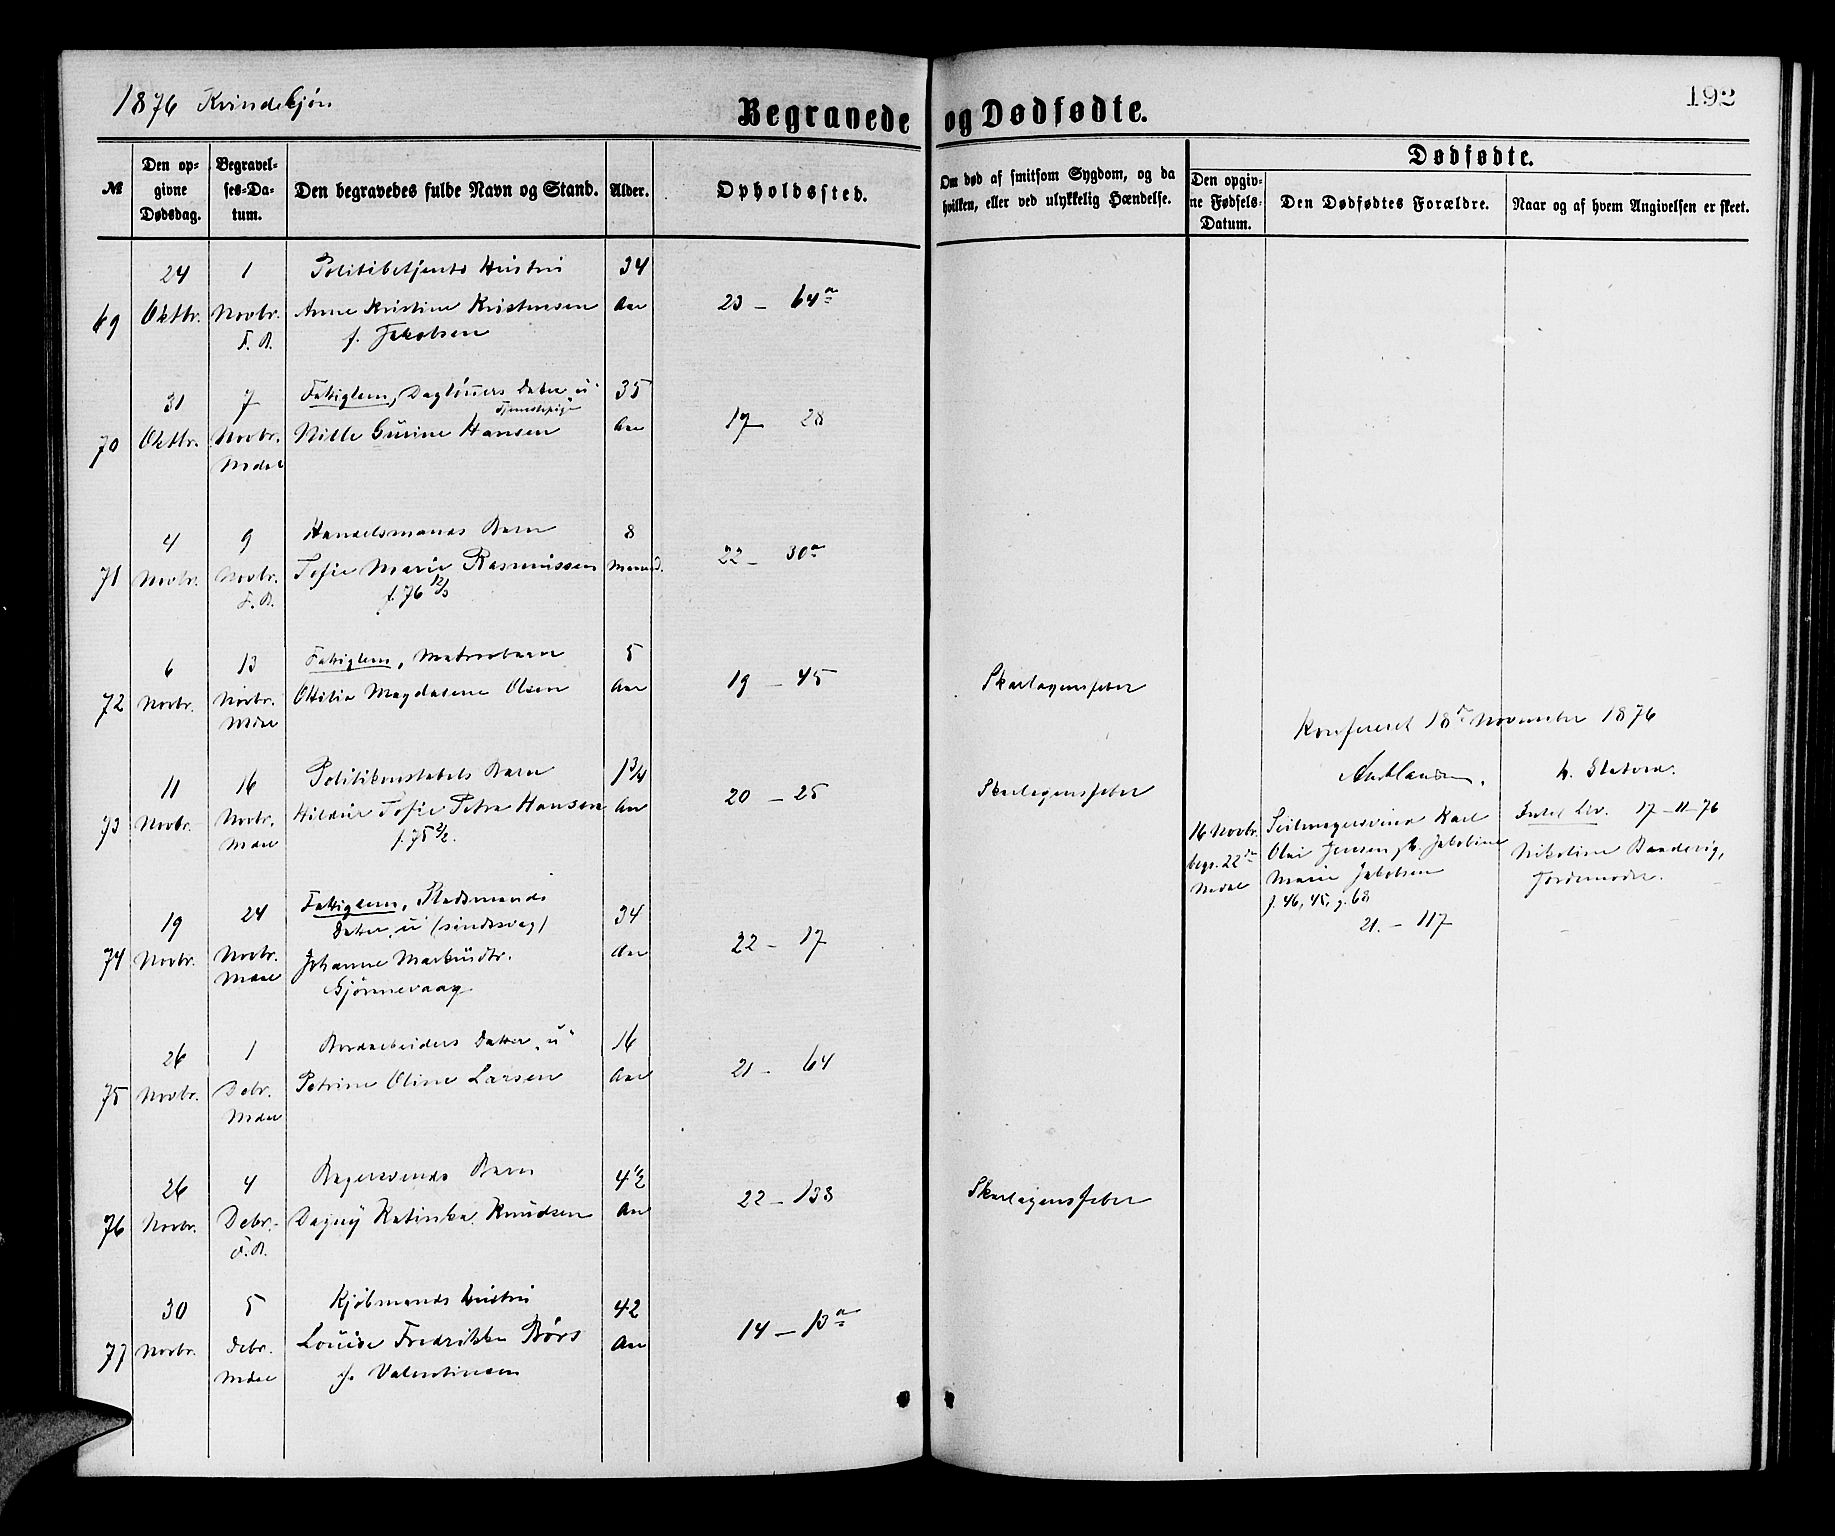 1876 Kvindekjøn
Begravede og Dødfødte.
192
№
Den op-
givne
Dødsdag.
Begravel-
ses-Da-
tum.
Den begravedes fulde Navn og Stand.
Alder.
Opholdssted.
Om død af smitsom Sygdom, og da
hvilken, eller ved ulykkelig Hændelse.
Dødfødte.
Den opgiv-
ne Fødsels-
Datum.
Den Dødfødtes Forældre.
Naar og af hvem Angivelsen er skeet.
24 1 Politibetjents Hustru 34
69 Oktbr. Novbr. Anne Kristine Kristensen Aar 23 – 64a
f. Jakobsen
31 7 Fattiglem, Dagløners Datter "u" 35
Tjenestepige
70 Oktbr. Novbr. Nille Gurine Hansen Aar 17 28
Mdal
4 9 Handelsmands Barn 8
71 Novbr. Novbr. Tofie Marie Rasmussen Maaned. 22 – 30a
f. 76 12/3
6 13 Fattiglem, Matrosbarn 5
72 Novbr. Novbr. Ottilie Magdalene Olsen Aar 19 – 45 Skarlagensfeber
Mdal
11 16 Politikonstabels Barn 1 3/4
73 Novbr. Novbr. Tofie Petra Hansen Aar 20 – 25 Skarlagensfeber
Mdal f. 75 2/2.
19 24 Fattiglem, Pladsmands 34
Datter "u" (sindssvag)
74 Novbr. Novbr. Johanne Markusdtr. Aar 22 – 17
Mdal Gjönnevaag
26 1 Bordarbeiders Datter "u" 16
75 Novbr. Debr. Petrine Oline Larsen Aar 21 – 64
Mdal
26 4 Bagersvends Barn 4 1/2
76 Novbr. Debr. Dagny Katinka Knudsen Aar 22 – 138 Skarlagensfeber
30 5 Kjøbmands Hustru 42
77 Novbr. Debr. Louise Fredrikke Börs Aar 14 – 13a
Mdal f. Valentinsen
Konfereret 18de November 1876
16 Novbr. Seilmagersvend Karl
begr. 22de Olai Jensen, h. Jakobine
Mdal Marie Jakobsen
f. 46, 45, g. 68
21. – 117
17–11–76
Nikoline
Jordemoder.